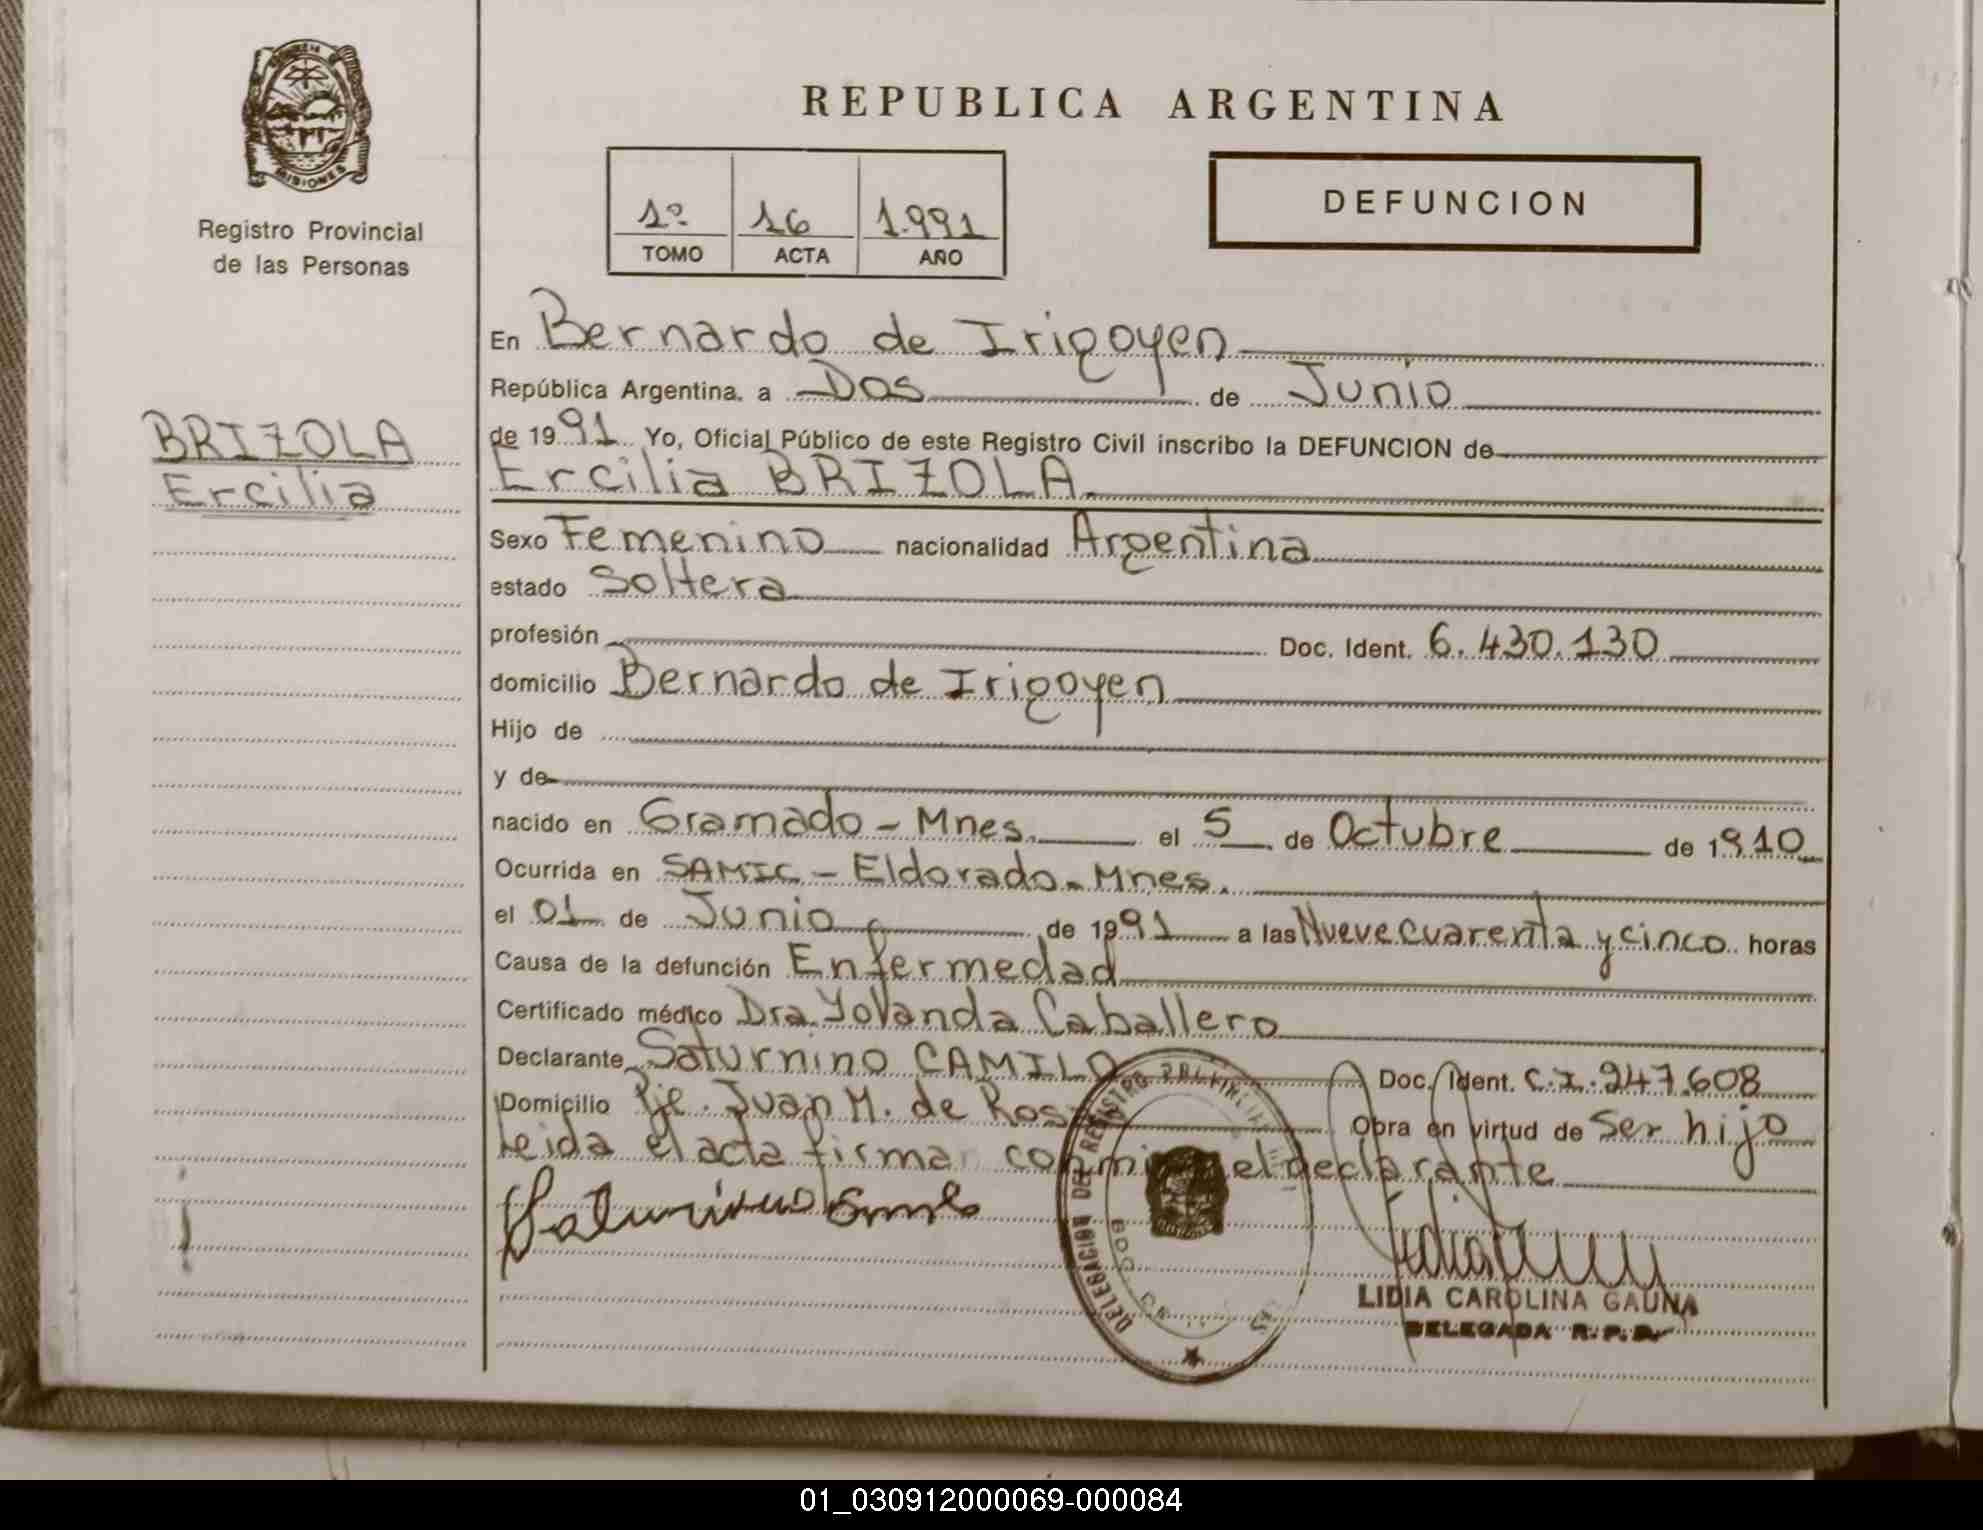 MISIONES
Registro Provincial
de las Personas
REPUBLICA ARGENTINA
1º 16 1.991
TOMO ACTA AÑO
DEFUNCION
BRIZOLA
Ercilia
En Bernardo de Irigoyen
República Argentina. a Dos de Junio
de 1991 Yo, Oficial Público de este Registro Civil inscribo la DEFUNCION de
Ercilia BRIZOLA
Sexo Femenino nacionalidad Argentina
estado Soltera
profesión Doc. Ident. 6.430.130
domicilio Bernardo de Irigoyen
Hijo de
y de
nacido en Gramado - Mnes. el 5 de Octubre de 1910
Ocurrida en SAMIC - Eldorado - Mnes.
el 01 de Junio de 1991 a las Nueve cuarenta y cinco horas
Causa de la defunción Enfermedad
Certificado médico Dra. Yolanda Caballero
Declarante Saturnino CAMILO Doc. Ident. C.I. 247.608
Domicilio Pje. Juan M. de Obra en virtud de Ser hijo
Leida el acta firman el declarante
DELEGACION DEL REGISTRO
LIDIA CAROLINA GAUNA
DELEGADA R.P.P.
01_030912000069-000084